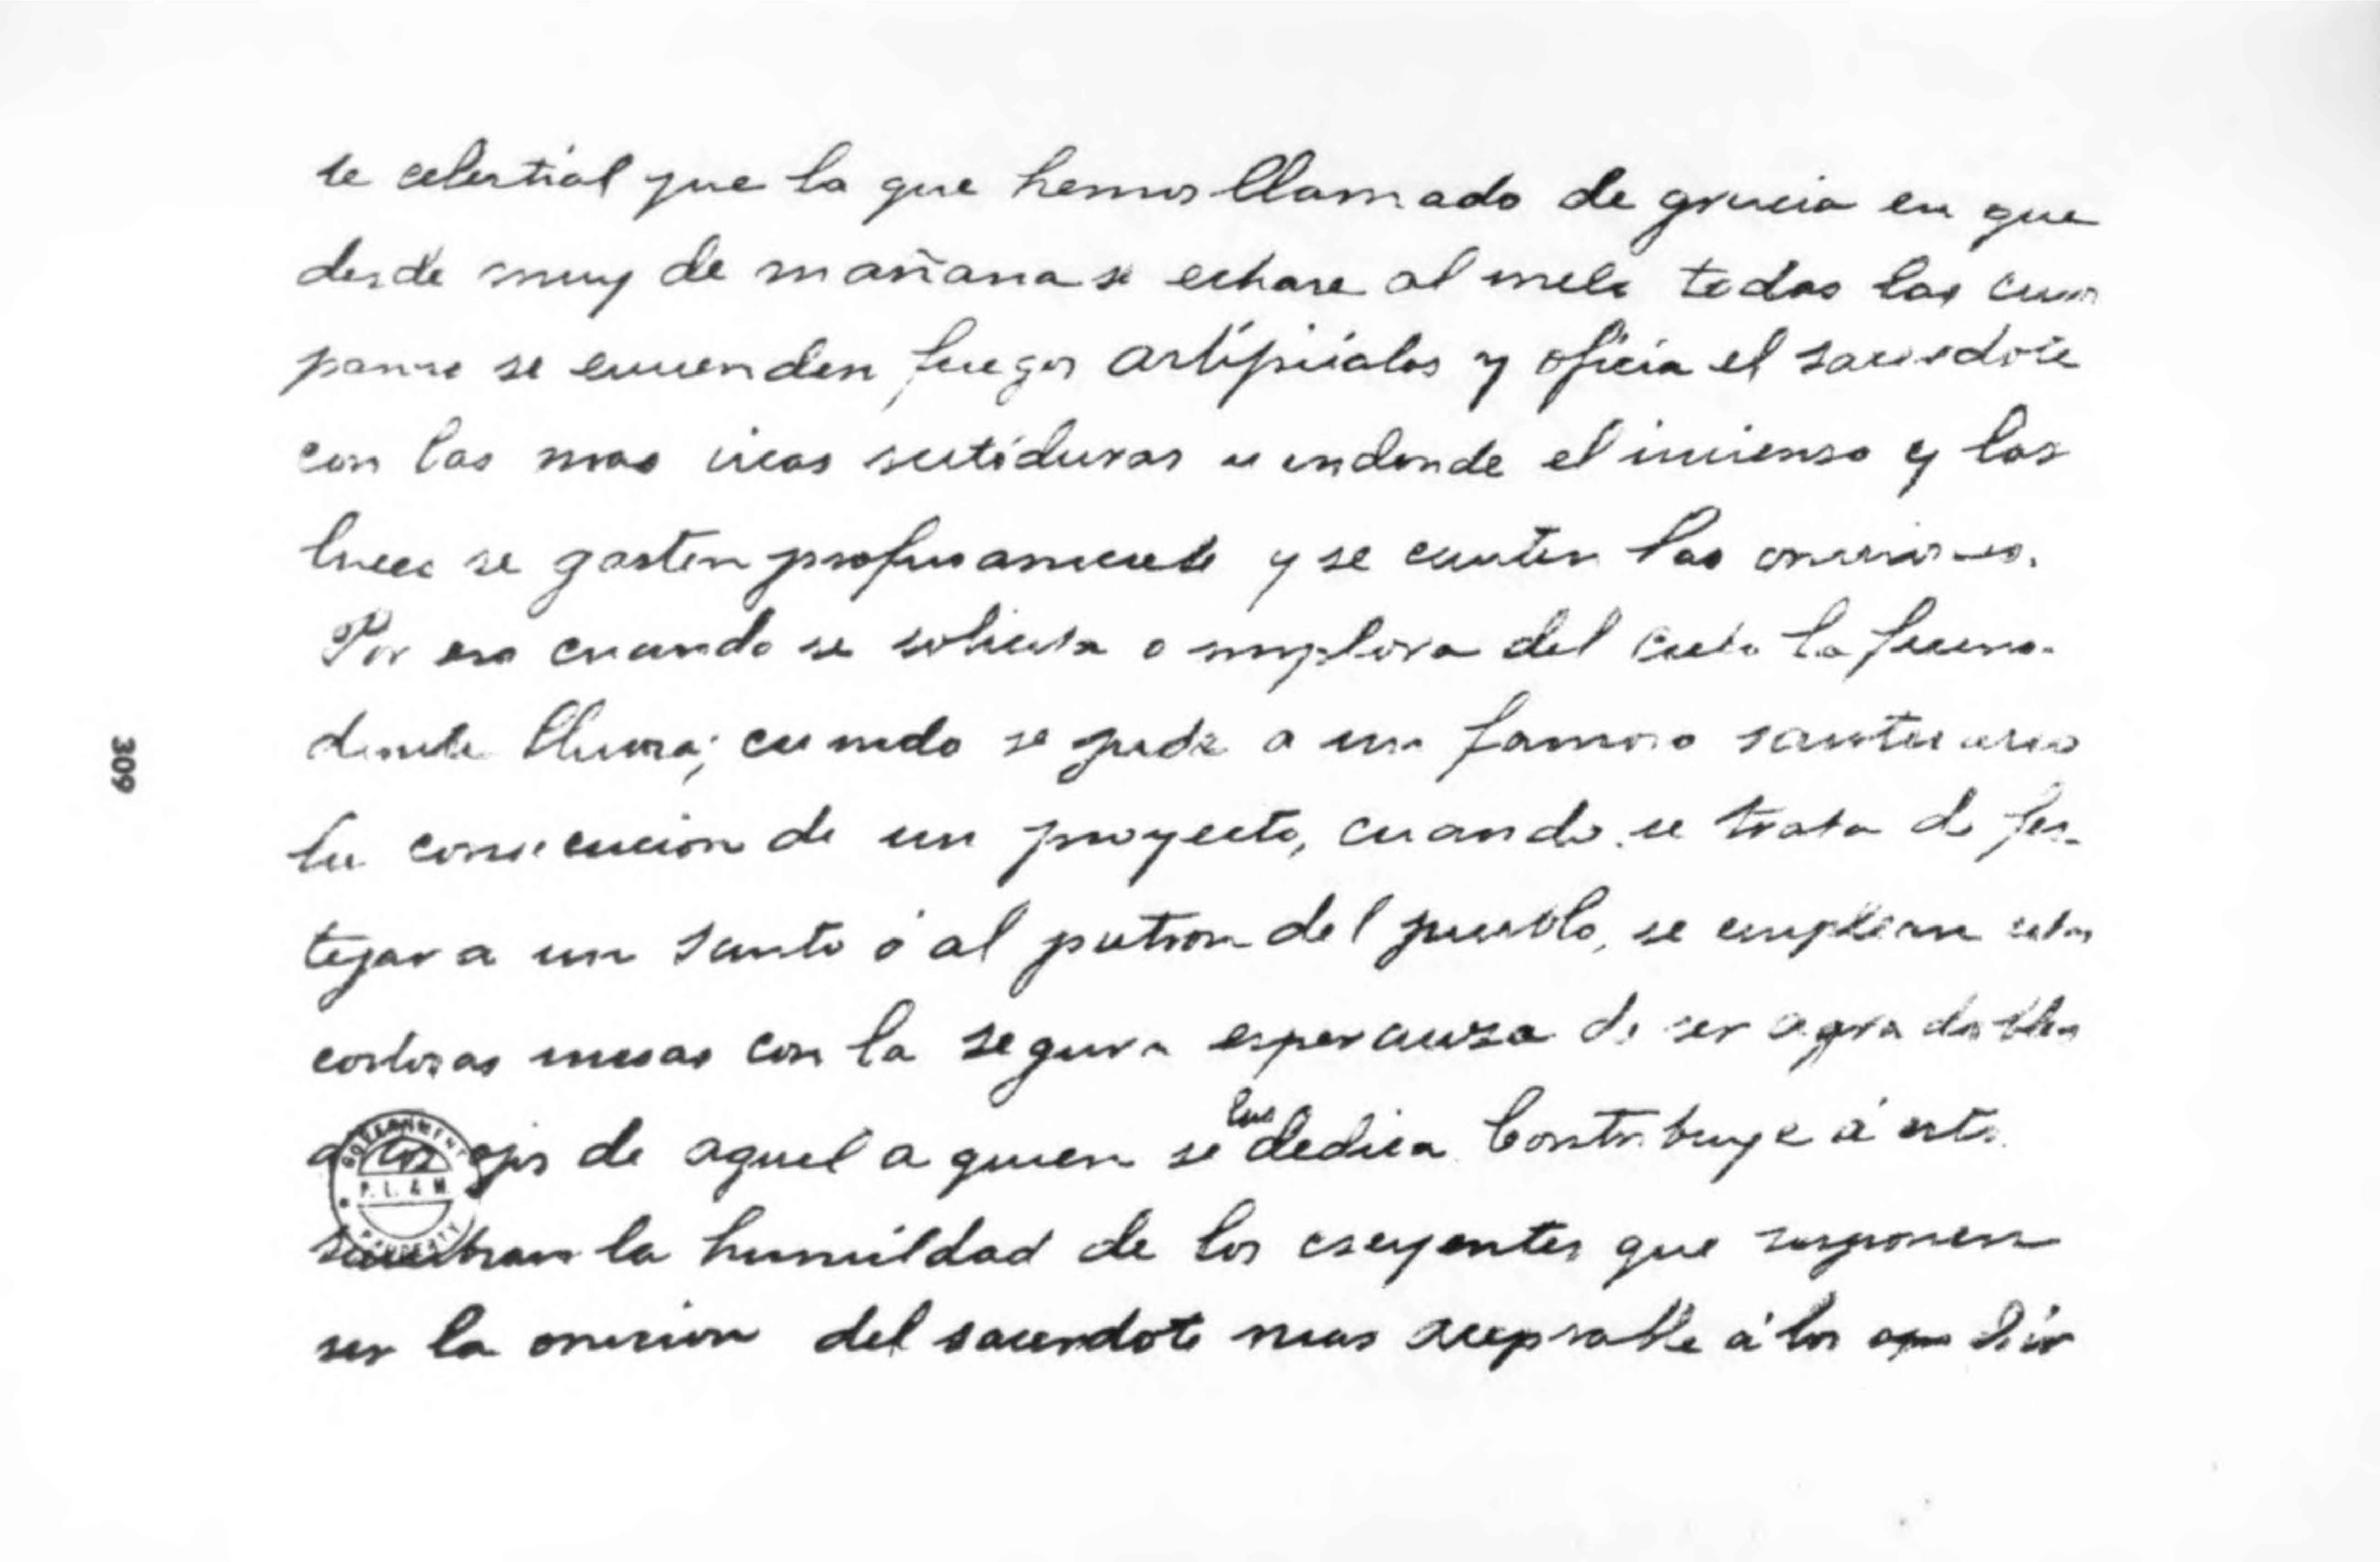 te celestial que la que hemos llamado de gracia en que
desde muy de mañana se echare al vuelo todas las cam
panas se encienden fuegos artificiales y oficia el sacerdote
con las mas ricas vestiduras se enciende el incienso y las
luces se gasten profusamente y se canten las oraciones.
Por eso cuando se solicita o implora del cielo la fecun-
dante lluvia; cuando se pide a un famoso santuario
la consecucion de un proyecto, cuando se trata de fes-
tejar a un santo ó al patron del pueblo, se emplean estas
costosas misas con la segura esperanza de ser agradables
a los ojos de aquel a quien se las dedica Contribuye á esto
la humildad de los creyentes que suponen
ser la oracion del sacerdote mas aceptable á los
309
GOVERNMENT
P. L. & M.
PROPERTY